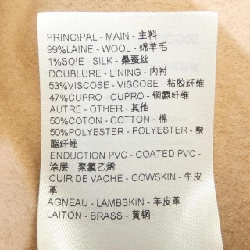 PRINCIPAL - MAIN - 主料
99%LAINE - WOOL - 绵羊毛
1%SOIE - SILK - 桑蚕丝
DOUBLURE - LINING - 内衬
53%VISCOSE - VISCOSE - 粘胶纤维
47%CUPRO - CUPRO - 铜氨纤维
AUTRE - OTHER - 其他
50%COTON - COTTON - 棉
50%POLYESTER - POLYESTER - 聚
酯纤维
ENDUCTION PVC - COATED PVC -
涂层 聚氯乙烯
CUIR DE VACHE - COWSKIN - 牛皮
革
AGNEAU - LAMBSKIN - 羊皮革
LAITON - BRASS - 黄铜